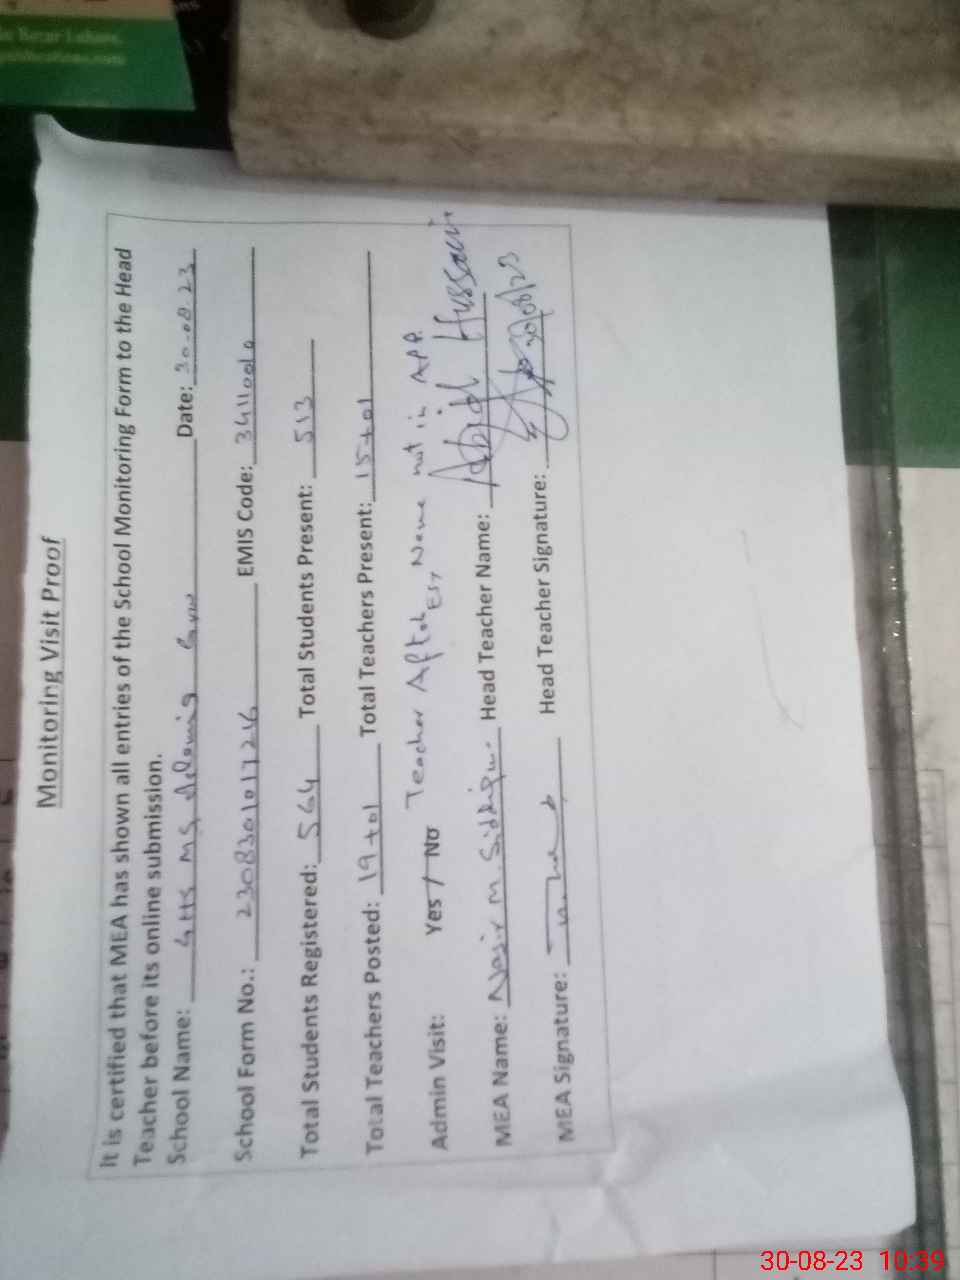 Monitoring Visit Proof
It is certified that MEA has shown all entries of the School Monitoring Form to the Head
Teacher before its online submission.
School Name: GHS MS Date: 30-08-23
School Form No.: 2308301017216 EMIS Code: 34110010
Total Students Registered: 564 Total Students Present: 513
Total Teachers Posted: 19+01 Total Teachers Present: 15+01
Admin Visit: Yes / No Teacher Aftab EST Name not in APP.
MEA Name: Nasir M. Siddiqui. Head Teacher Name: Abid Hussain
MEA Signature: Head Teacher Signature: 30/08/23
30-08-23 10:39